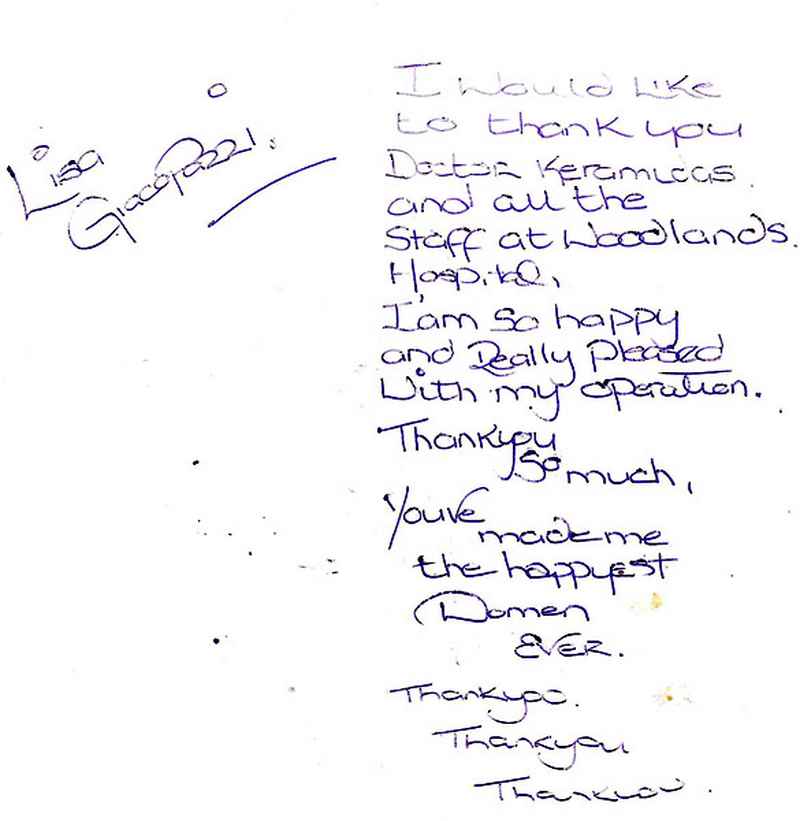 Lisa
Giacopazzi.
I would like
to thank you
Doctor Keramidas
and all the
Staff at Woodlands.
Hospital,
I'am so happy
and Really pleased
With my operation.
Thankyou
So much,
You've
made me
the happyest
Women
EVER.
Thankyou.
Thankyou
Thankyou.